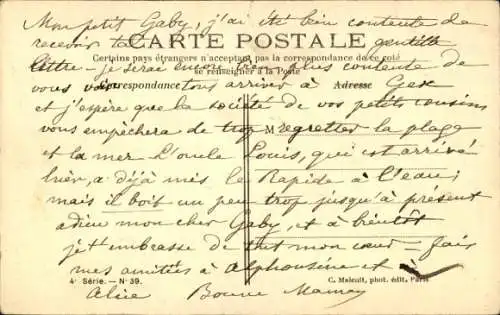 Mon petit Gaby, j'ai été bien contente de
recevoir ta gentille
CARTE POSTALE
Certains pays étrangers n'acceptent pas la correspondance de ce côté
lettre je serai encore plus contente de
se renseigner à la Poste
vous voir tous arriver à Gex
Correspondance Adresse
et j'espère que la société de vos petits cousins
vous empêchera de trop regretter la plage
M
et la mer. L'oncle Louis, qui est arrivé
hier, a déjà mis le Rapide à l'eau;
mais il boit un peu trop jusqu'à présent
adieu mon cher Gaby, et à bientôt
je t'embrasse de tout mon cœur = fais
mes amitiés à Alphonsine et à
4e Série. — No 39. C. Malcuit, phot. édit., Paris
Alice Bonne Maman